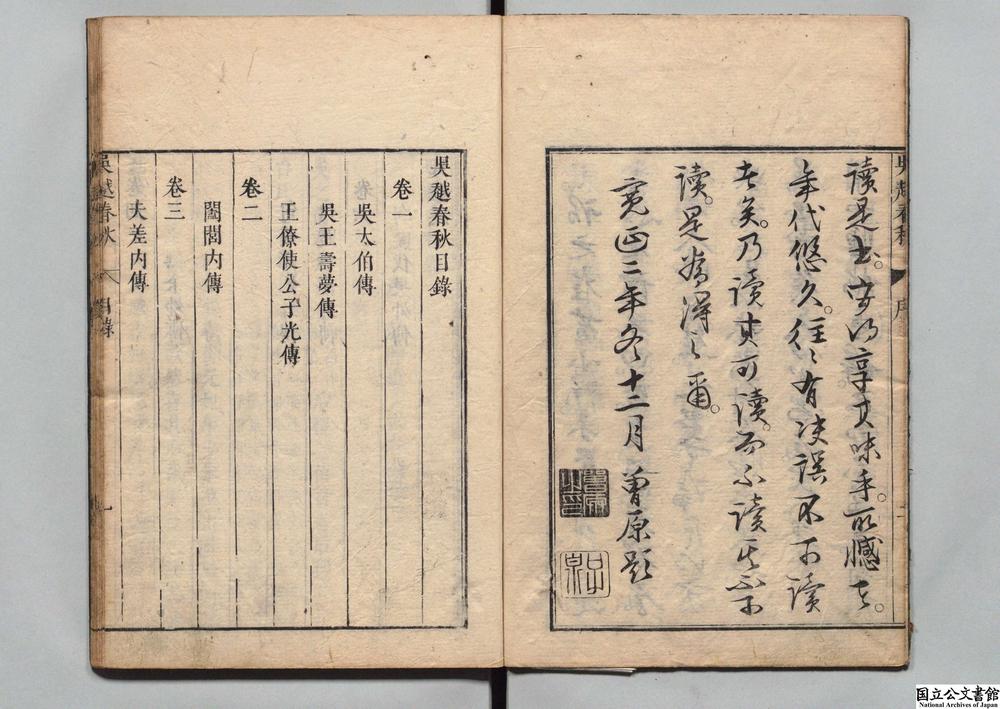 讀是書。安得享其味乎。所憾者。
年代悠久。往々有决誤不可讀
者矣。乃讀其可讀。而不讀其不可
讀。是為得之爾。
寛政二年冬十二月 曽原題
吳越春秋 序
吳越春秋目錄
卷一
吳太伯傳
吳王壽夢傳
王僚使公子光傳
卷二
闔閭內傳
卷三
夫差內傳
吳越春秋 目錄 一
国立公文書館
National Archives of Japan